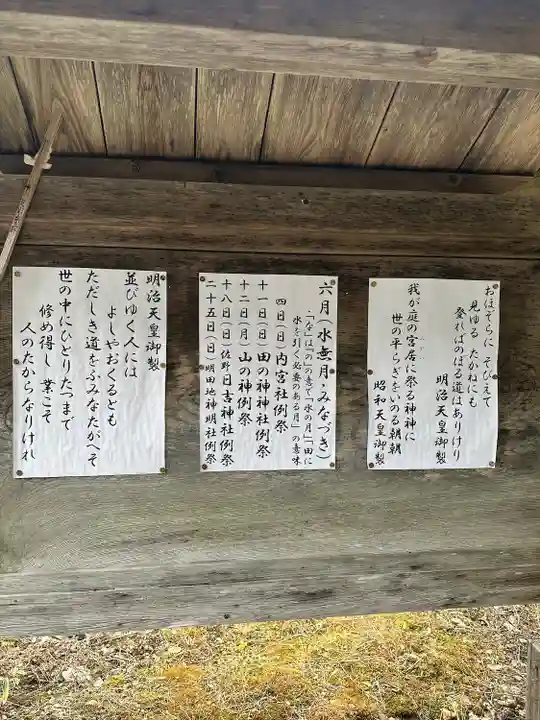 おほぞらに そびえて
見ゆる たかねにも
登ればのぼる道はありけり
明治天皇御製
我が庭の宮居に祭る神神に
世の平らぎをいのる朝朝
昭和天皇御製
六月(水無月・みなづき)
「な」は「の」の意で「水の月」「田に
水を引く必要のある月」の意味
四日(日)内宮社例祭
十一日(日)田の神神社例祭
十二日(月)山の神例祭
十八日(日)佐野日吉神社例祭
二十五日(日)明田地神明社例祭
明治天皇御製
並びゆく人には
よしやおくるとも
ただしき道をふみなたがへそ
世の中にひとりたつまで
修め得し 業こそ
人のたからなりけれ